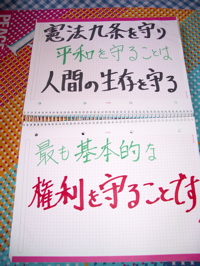 憲法九条を守り
平和を守ることは
人間の生存を守る
最も基本的な
権利を守ることです